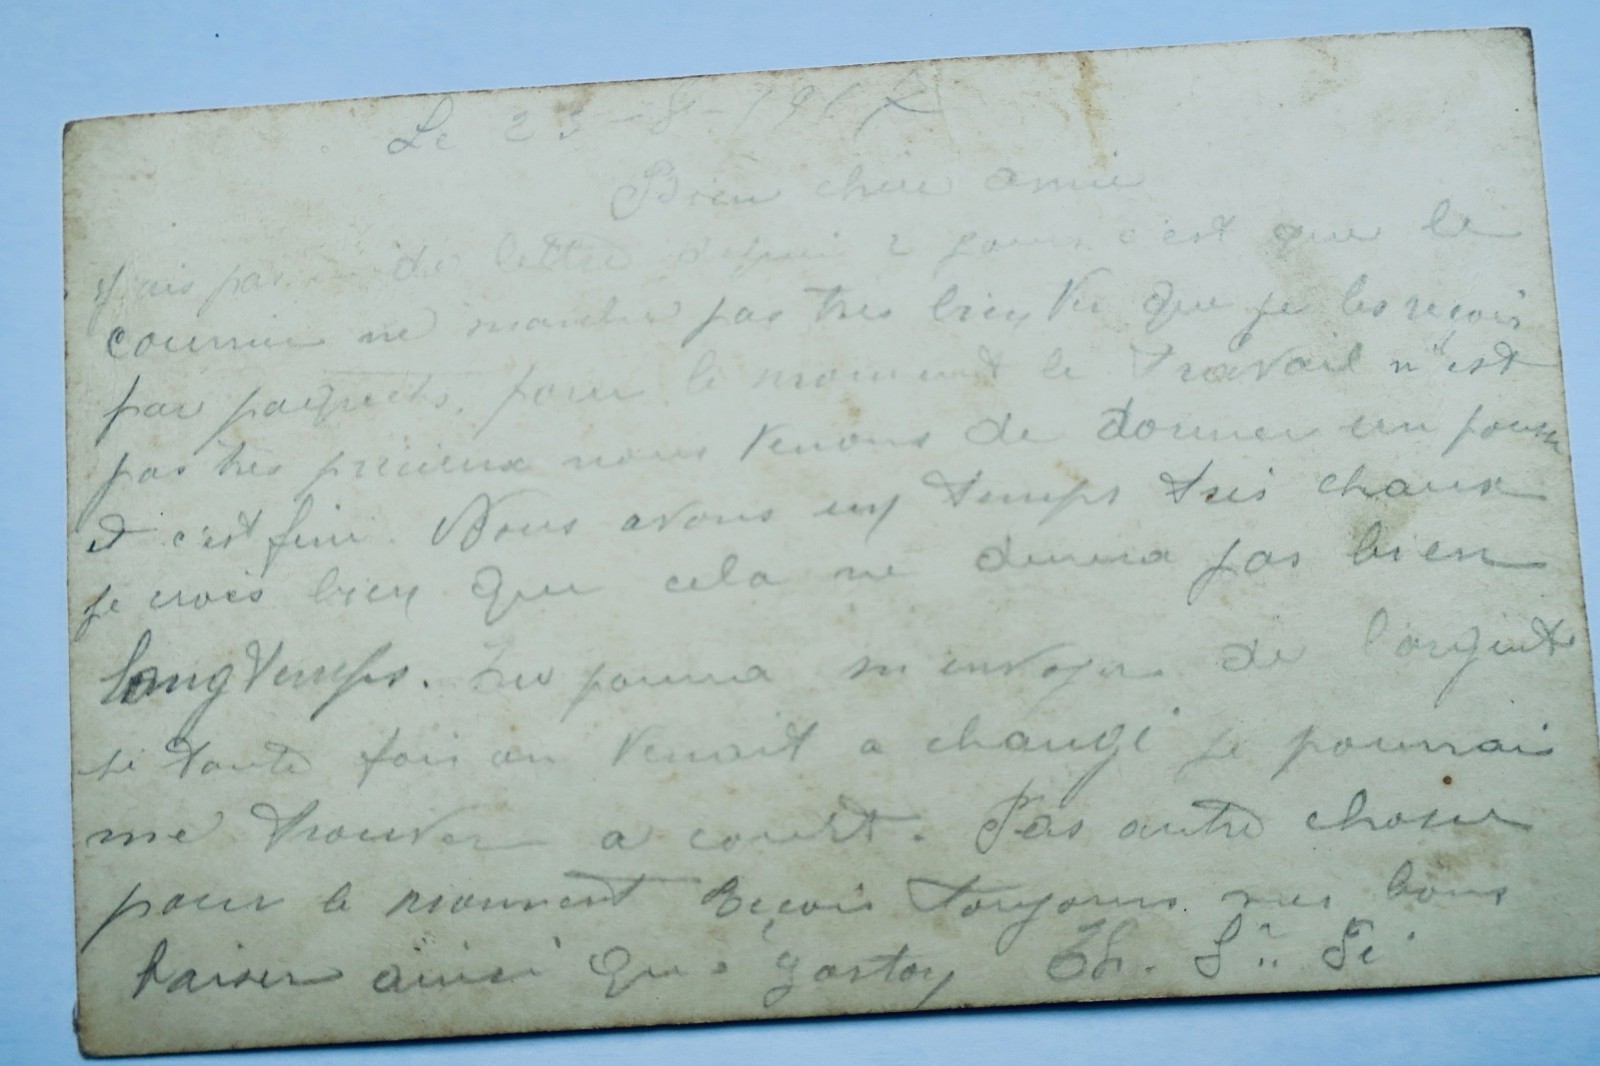 Le 23-8-1917
Bien chere amie
J'ais pas de lettre depui 2 jours c'est que le
courrier ne marche pas tres bien Vu que je les reçois
par paquets. pour le moment le travail n'est
pas tres precieux nous Venons de donner un
et c'est fini. Nous avons un temps tres chaux
je crois bien que cela ne durera pas bien
longtemps. Tu pourra m'envoyer de l'argent
si toute fois on Venait a changé je pourrai
me trouver a court. Pas autre chose
pour le moment Reçois toujours mes bons
baiser ainsi que Gaston